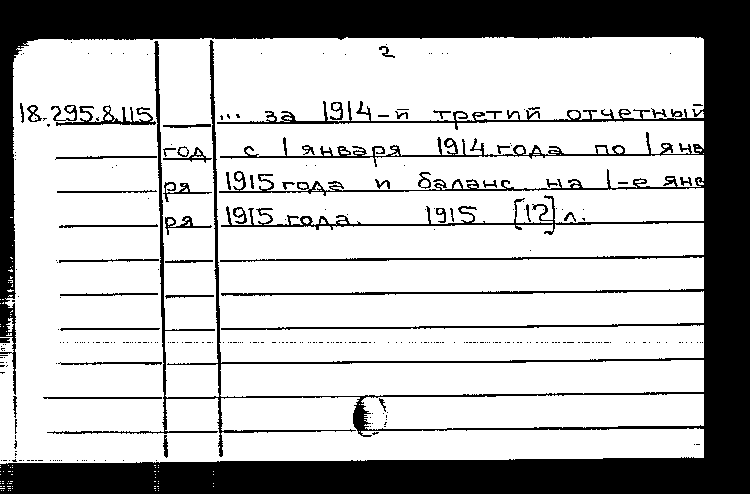 2
18.295.8.115 ... за 1914-й третий отчетный
год с 1 января 1914 года по 1 янв
ря 1915 года и баланс на 1-е янв
ря 1915 года. 1915. [12] л.